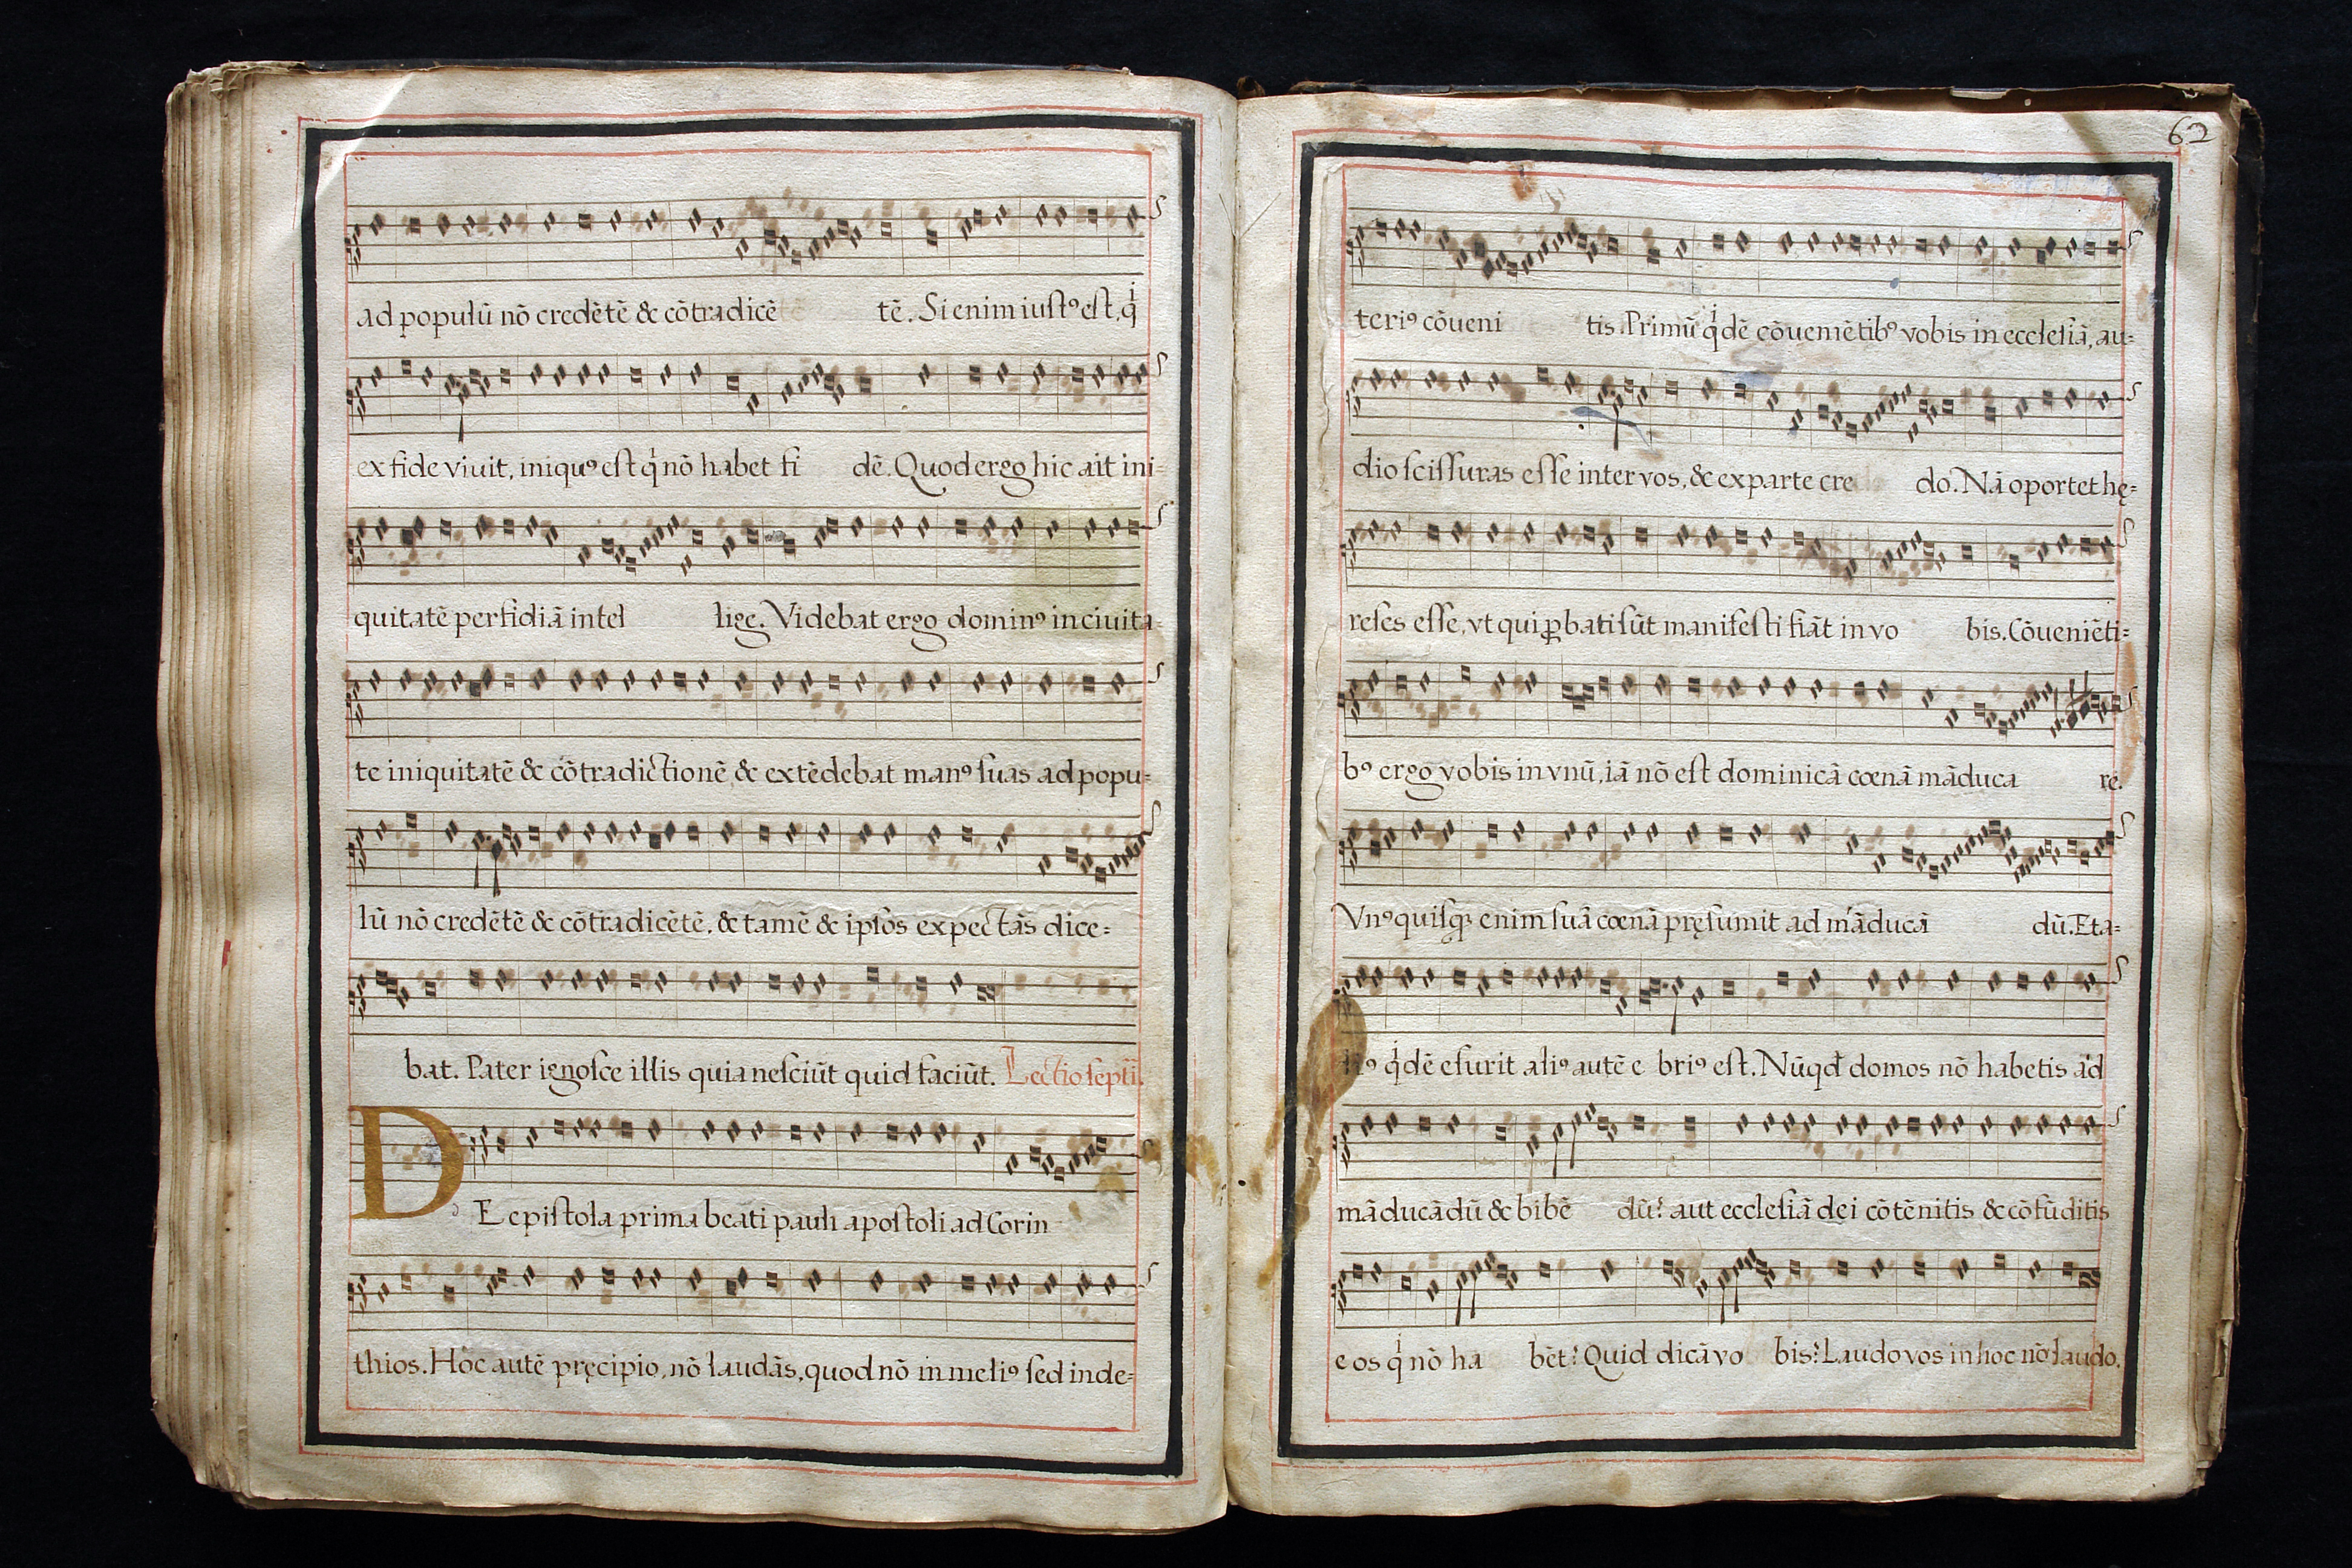 ad populū nō credētē & cōtradicē tē. Si enim iuſtꝰ eſt, qͥ
ex fide viuit, iniquꝰ eſt qͥ nō habet fi dē. Quod ergo hic ait ini-
quitatē perfidiā intel lige. Videbat ergo dominꝰ in ciuita-
te iniquitatē & cōtradictionē & extēdebat manꝰ ſuas ad popu-
lū nō credētē & cōtradicētē. & tamē & ipſos expectās dice-
bat. Pater ignoſce illis quia neſciūt quid faciūt. Lectio ſeptī.
DE epiſtola prima beati pauli apoſtoli ad Corin
thios. Hoc autē pręcipio, nō laudās, quod nō in meliꝰ ſed in de-
62
teriꝰ cōueni tis. Primū qͥdē cōueniētibꝰ vobis in eccleſiā, au-
dio ſciſſuras eſſe inter vos, & ex parte cre do. Nā oportet hę-
reſes eſſe, vt qui ꝓbati ſūt manifeſti fiāt in vo bis. Cōueniēti-
bꝰ ergo vobis in vnū, iā nō eſt dominicā cœnā māduca re.
Vnꝰ quiſqꝫ enim ſuā cœnā pręſumit ad māducā dū. Et a-
liꝰ qͥdē eſurit aliꝰ autē e briꝰ eſt. Nūqd domos nō habetis ad
māducādū & bibē dū? aut eccleſiā dei cōtēnitis & cōfūditis
eos qͥ nō ha bēt? Quid dicā vo bis? Laudo vos in hoc nō laudo.